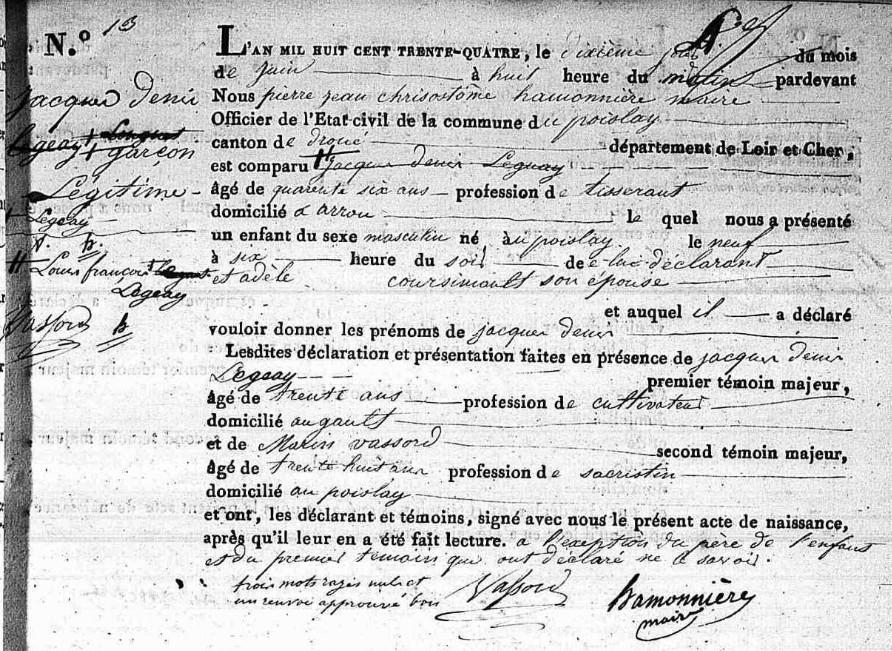 N.° 13
L'AN MIL HUIT CENT TRENTE-QUATRE, le dixième jour du mois
de juin à huit heure du matin pardevant
Nous pierre jean chrisostôme hamonnière maire
Officier de l'Etat civil de la commune du poislay
canton de droué département de Loir et Cher,
est comparu # jacques denis Legeay
âgé de quarente six ans profession de tisserant
domicilié a arrou le quel nous a présenté
un enfant du sexe masculin né au poislay le neuf
à six heure du soir de lui déclarant
et adèle coursimault son épouse
et auquel il a déclaré
vouloir donner les prénoms de jacques denis
Lesdites déclaration et présentation faites en présence de jacques denis
Legeay premier témoin majeur,
âgé de trente ans profession de cultivateur
domicilié au gault
et de Marin vassord second témoin majeur,
âgé de trente huit ans profession de sacristin
domicilié au poislay
et ont, les déclarant et témoins, signé avec nous le présent acte de naissance,
après qu'il leur en a été fait lecture. a l'exeption du père de l'enfant
et du premier temoin qui ont déclaré ne le savoir.
trois mots rayés nuls et
un renvoi approuvé bon
Vassord
hamonnière
maire
jacques denis
Legeay +
+ garçon
Légitime
+ Legeay
h.
# Louis françois
Legeay
Vassord h